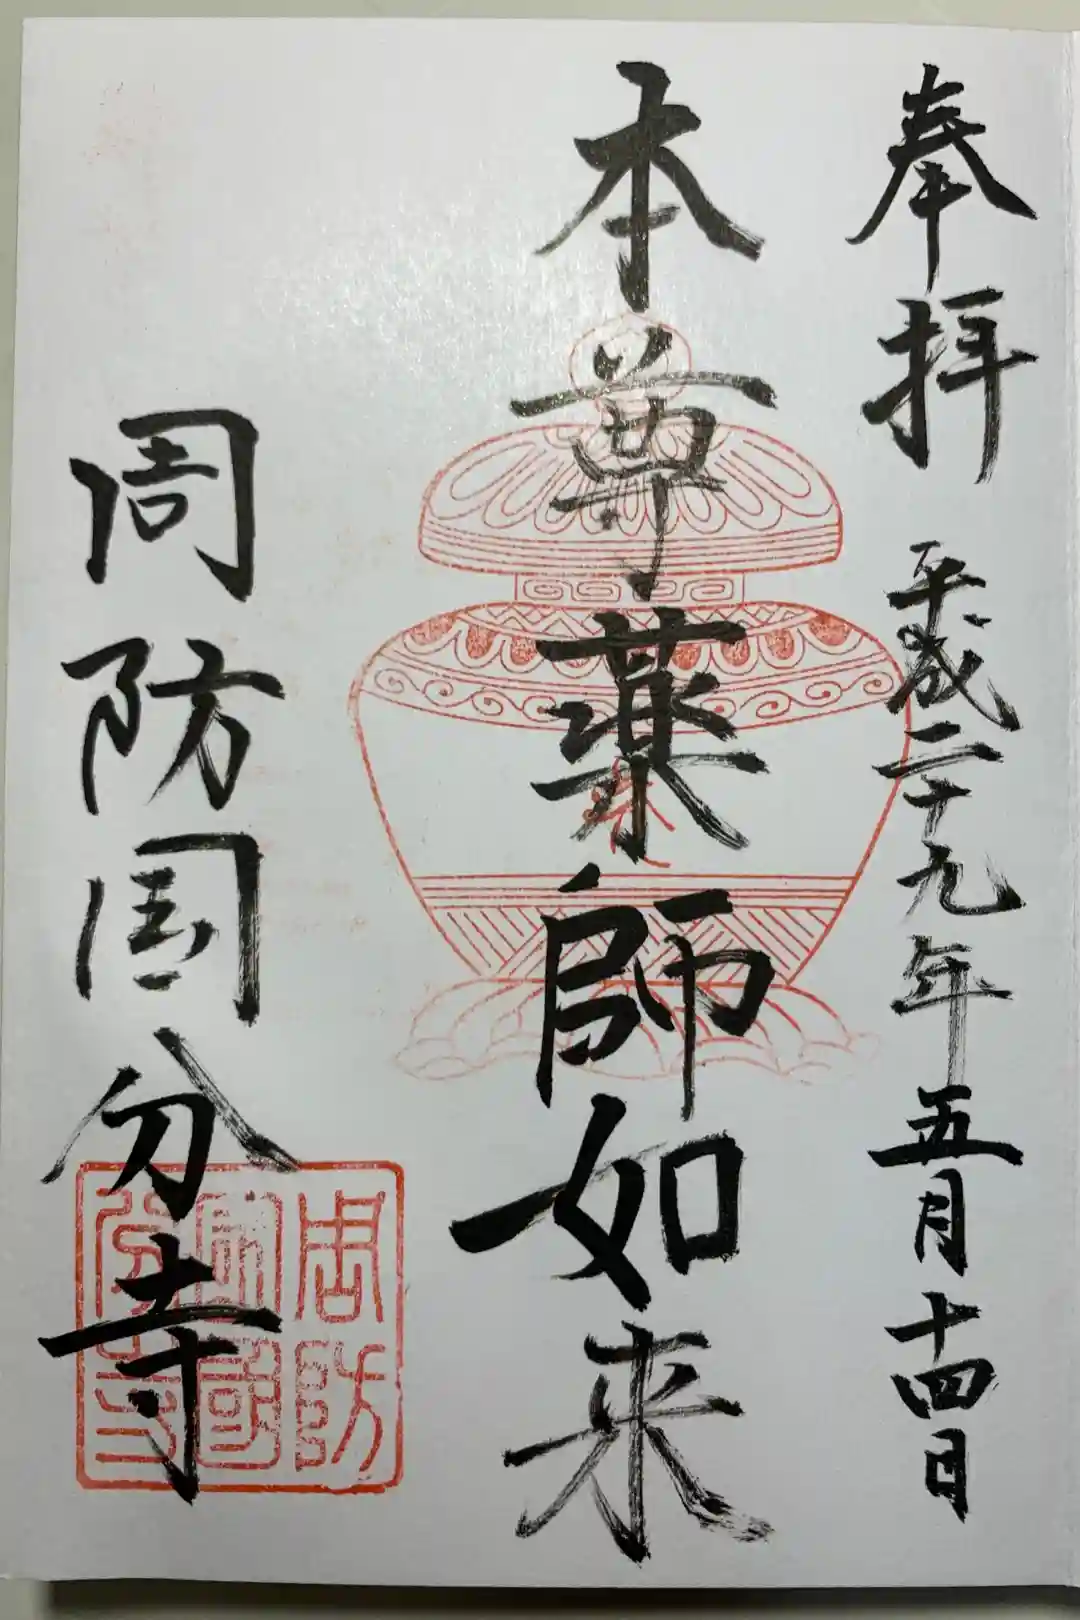 奉拝 平成二十九年五月十四日
本尊薬師如来
周防国分寺
周防
國